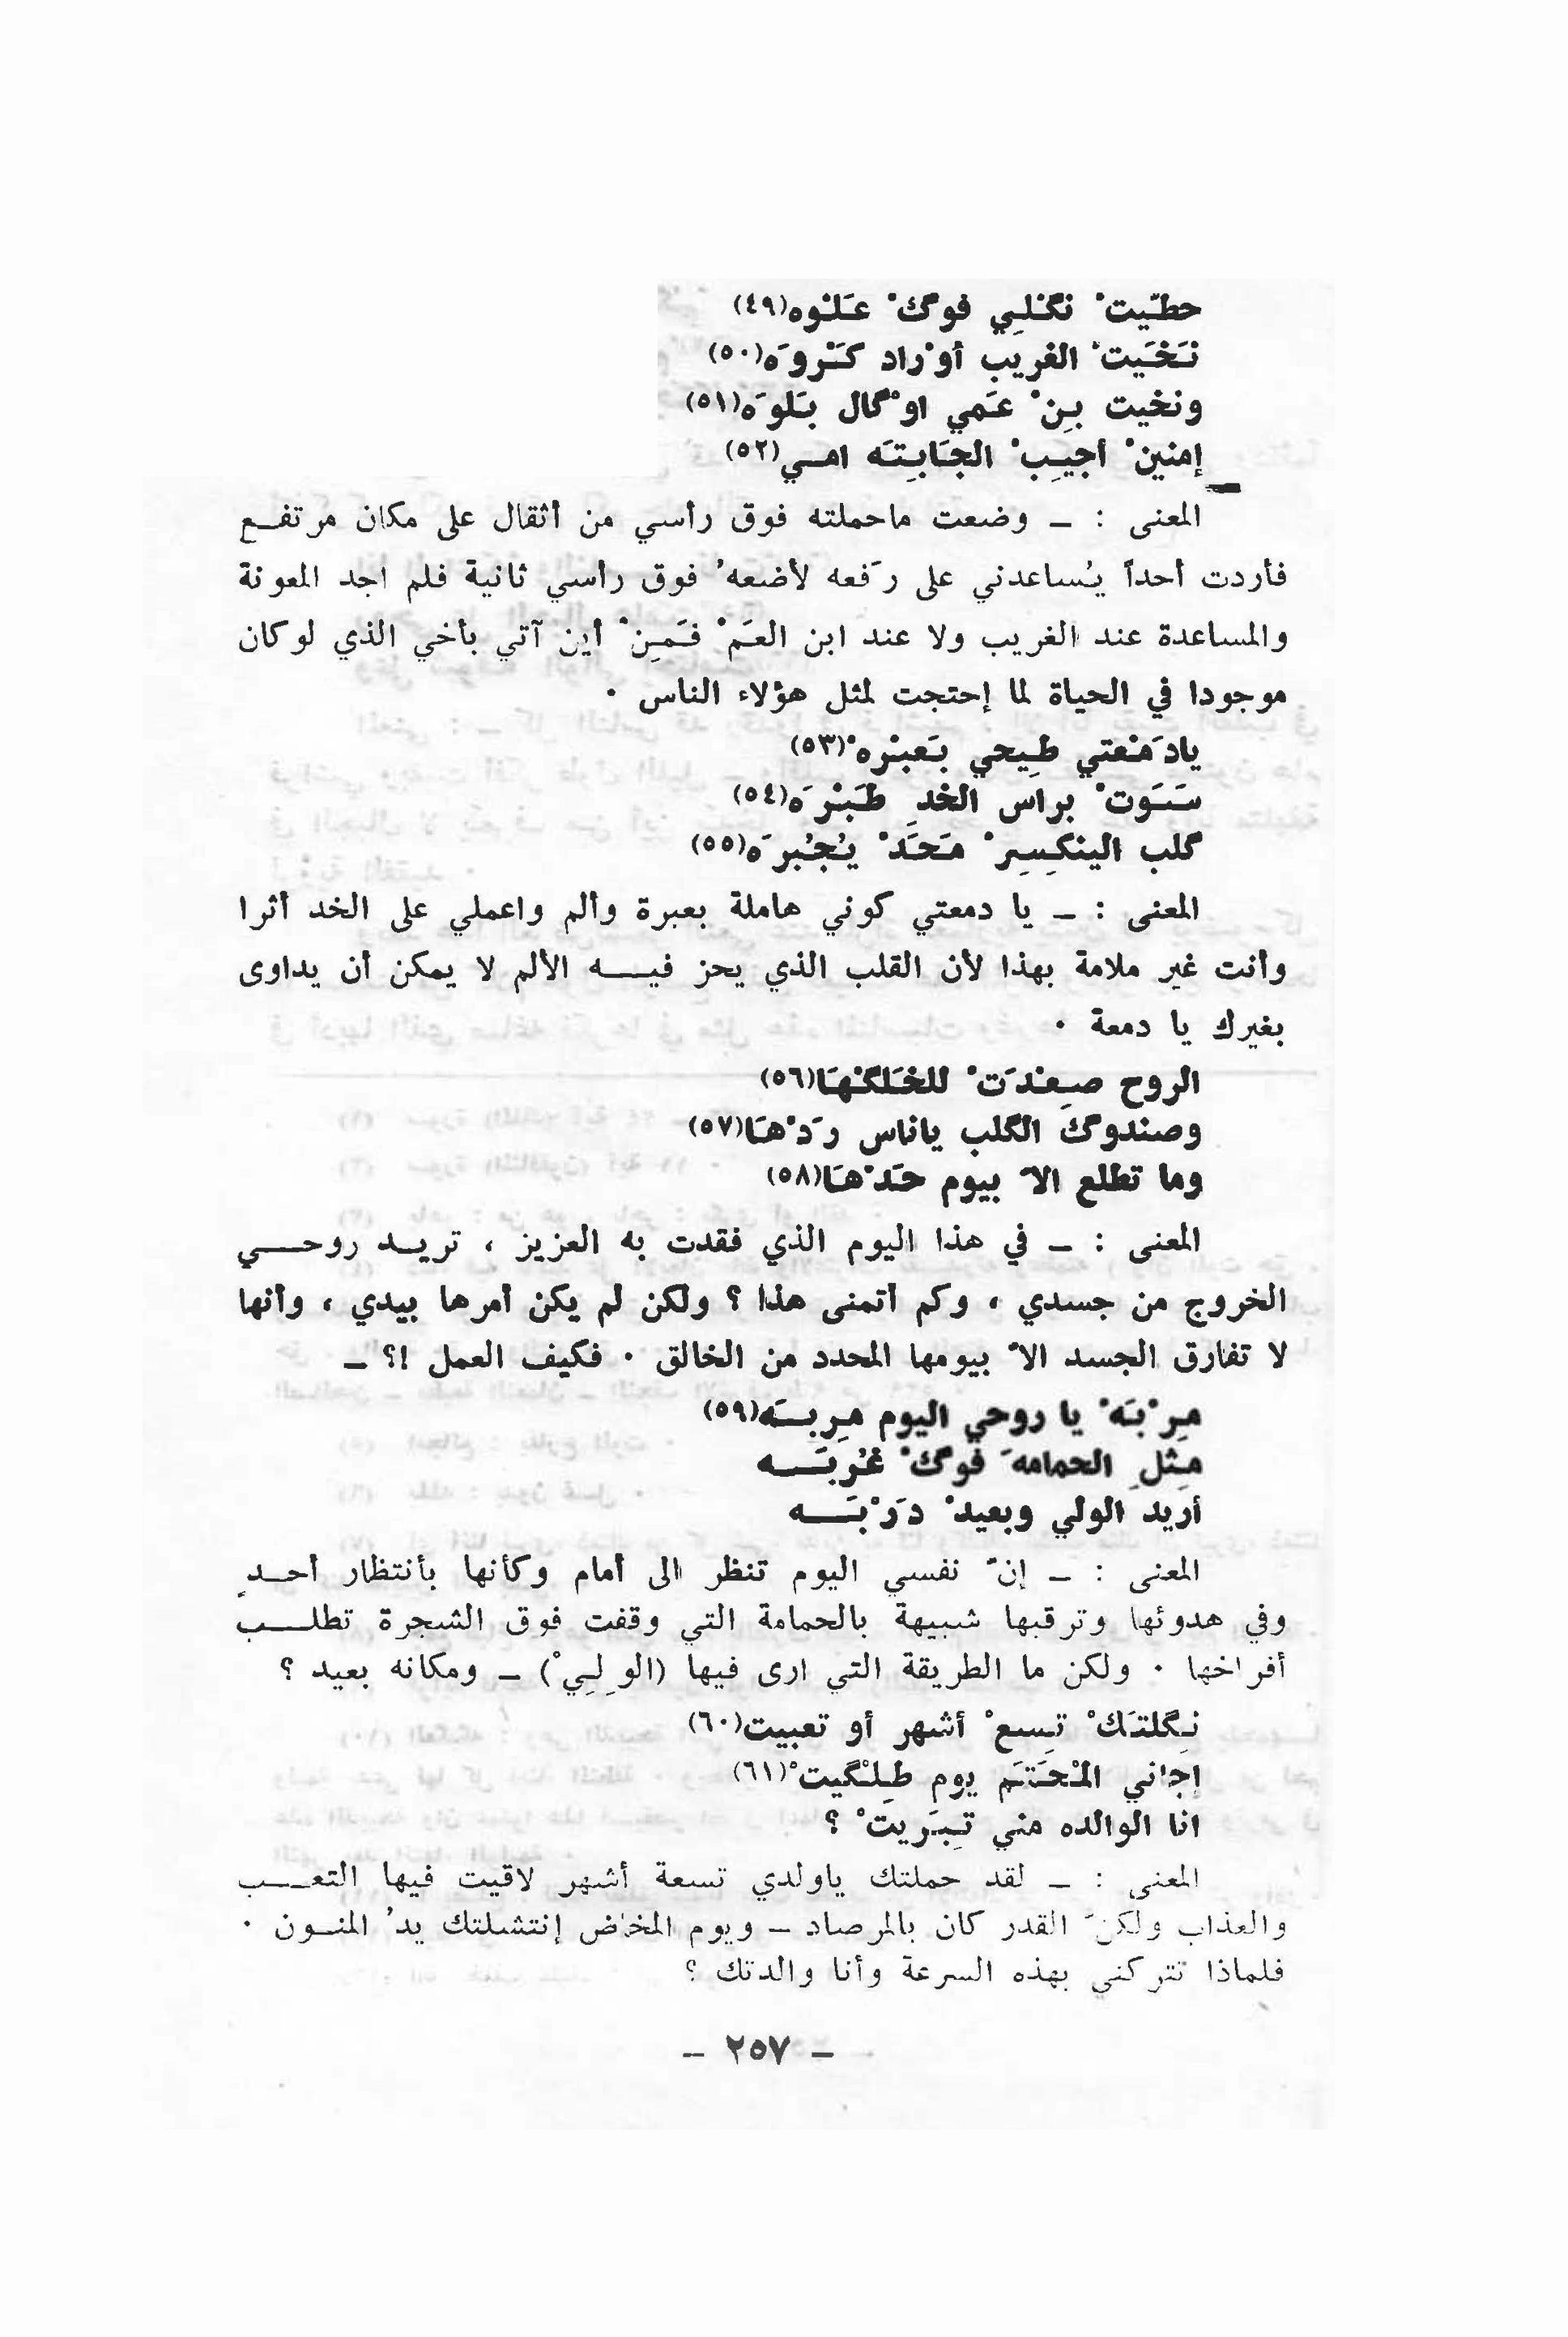 حطّيتْ نگـْلـِي فوگ ْ عـَلـْوه(٤٩)
نـَخـَيت ْ الغريب أو ْراد كـَـرو َه(٥٠)
ونخيت بـِن ْ عـَمي او ْگال بـَلو َه(٥١)
إمنين ْ أجيـِب ْ الجـَابـِتـَه امـي(٥٢)
المعنى : ــ وضعت ماحملته فوق رأسي من أثقال على مكان مرتفـع
فأردت أحداً يـُساعدني على ر َفعه لأضعه ُ فوق رأسي ثانية فلم اجد المعونة
والمساعدة عند الغريب ولا عند ابن العـَم ْ فـَمـِن ْ أين آتي بأخي الذي لوكان
موجودا في الحياة لما إحتجت لمثل هؤلاء الناس ٠
ياد َمـْعتي طـِيحي بـَعبـْره ْ(٥٣)
سـَـوت ْ براس الخدِ طـَبـْر َه(٥٤)
گلب الينكـِسـِر ْ مـَحـَد ْ يـُجـْبر َه(٥٥)
المعنى : ــ يا دمعتي كوني هاملة بعبرة وألم واعملي على الخد أثرا
وأنت غير ملامة بهذا لأن القلب الذي يحز فيــه الألم لا يمكن أن يداوى
بغيرك يا دمعة ٠
الروح صـِعـْد َت ْ للخـَلگـْهـَا(٥٦)
وصندوگ الگلب ياناس ر َد ْهـَا(٥٧)
وما تطلع الا ّ بيوم حـَد ْهـَا(٥٨)
المعنى : ــ في هذا اليوم الذي فقدت به العزيز ، تريـد روحــي
الخروج من جسدي ، وكم أتمنى هذا ؟ ولكن لم يكن أمرها بيدي ، وأنها
لا تفارق الجسد الا ّ بيومها المحدد من الخالق ٠ فكيف العمل !؟ ــ
مـِر ْبـَه ْ يا روحي اليوم مـِربــَه(٥٩)
مـِثل ِ الحمامه َ فوگ ْ غـُربــَـه
أريد الولي وبعيد ْ د َر ْبــَـه
المعنى : ــ إن ّ نفسي اليوم تنظر الى أمام وكأنها بأنتظار أحـدٍ
وفي هدوئها وترقبها شبيهة بالحمامة التي وقفت فوق الشجرة تطلــب
أفراخها ٠ ولكن ما الطريقة التي ارى فيها (الو ِلـِي ْ) ــ ومكانه بعيد ؟
نـِگلتـَك ْ تـِسع ْ أشهر أو تعبيت(٦٠)
إجاني المـْحـَتـَم يوم طـِلـْگيت ْ(٦١)
انا الوالده مني تـِبـَريت ْ ؟
المعنى : ــ لقد حملتك ياولدي تسعة أشهر لاقيت فيها التعـــب
والعذاب ولكن ّ القدر كان بالمرصاد ــ ويوم المخاض إنتشلتك يد ُ المنــون ٠
فلماذا تتركني بهذه السرعة وأنا والدتك ؟
ــ ٢٥٧ ــ